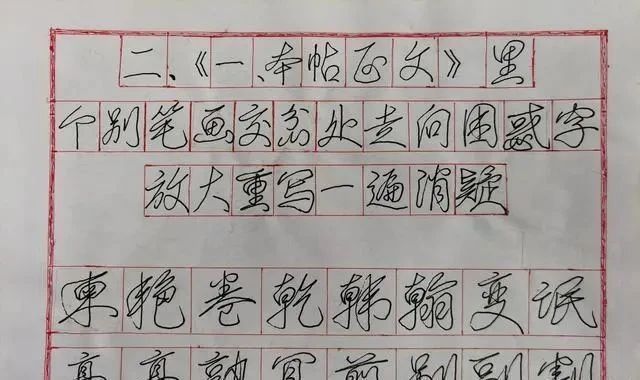 二、《一、本帖正文》里
个别笔画交岔处走向困惑字
放大重写一遍消疑
東艳卷乾韩翰变
前别到割